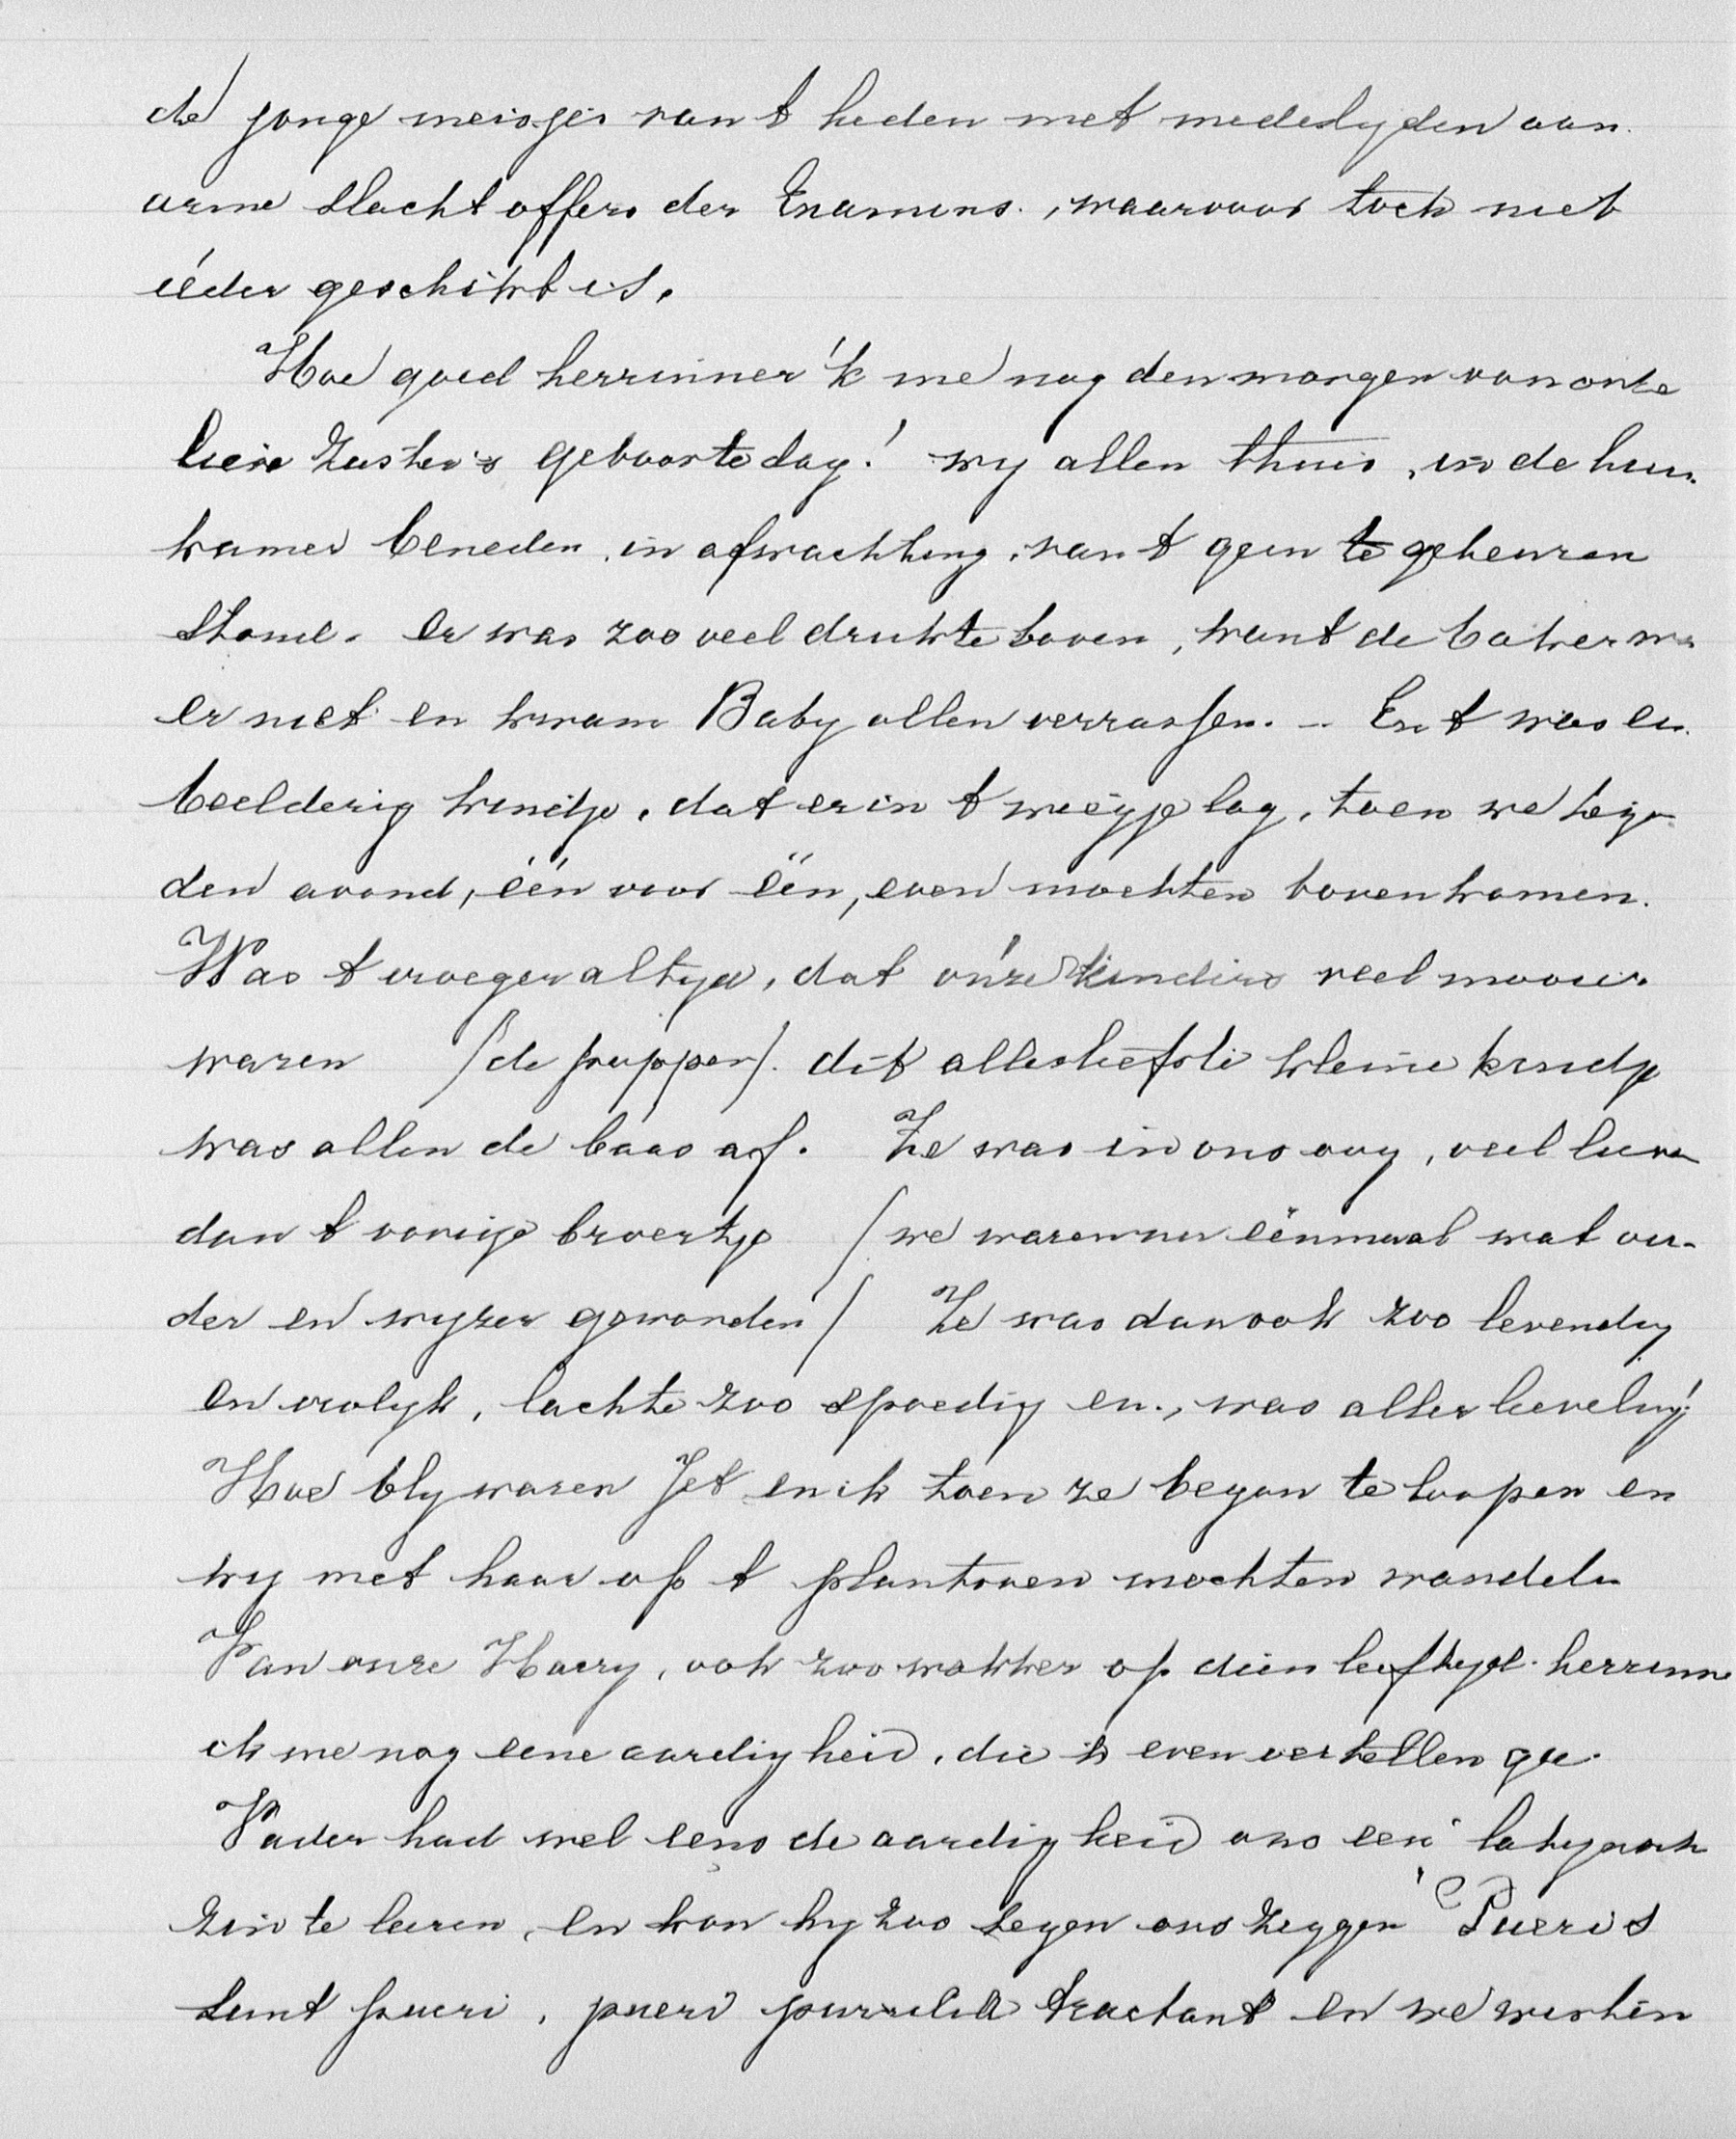 de jonge meisjes van t heden met medelyden aan.
arme slachtoffers der Examens, waarvoor toch niet
iéder geschikt is.
Hoe goed herrinner 'k me nog den morgen van onze
lieve zuster's geboortedag! wy allen thuis, in de huis.
kamer beneden, in afwachting, van t geen te gebeuren
stond. Er was zoo veel drukte boven, want de baker was
er niet en kwam Baby allen verrassen. – En t was een
beelderig kindje, dat er in t wiegje lag, toen we tegen
den avond, één voor één, even mochten boven komen.
Was t vroeger altyd, dat ónze kinders veel mooier
waren (de poppen). dit allerliefste kleine kindje
was allen de baas af. Ze was in ons oog, veel liever
dan t vorige broertje (we waren nu éénmaal wat ou-
der en wyzer geworden) Ze was dan ook zoo levendig
en vrolyk, lachte zoo spoedig en, was aller lieveling!
Hoe bly waren Jet en ik toen ze begon te loopen en
wy met haar op t plantsoen mochten wandelen
Van onze Harry, ook zoo wakker op dien leeftyd herrinner
ik me nog eene aardigheid, die ik even vertellen ga.
Vader had wel eens de aardigheid ons een latynsch
zin te leeren, en kon hy zoo tegen ons zeggen "Pueri s
sunt pueri, pueri puerilia tractant en we wisten